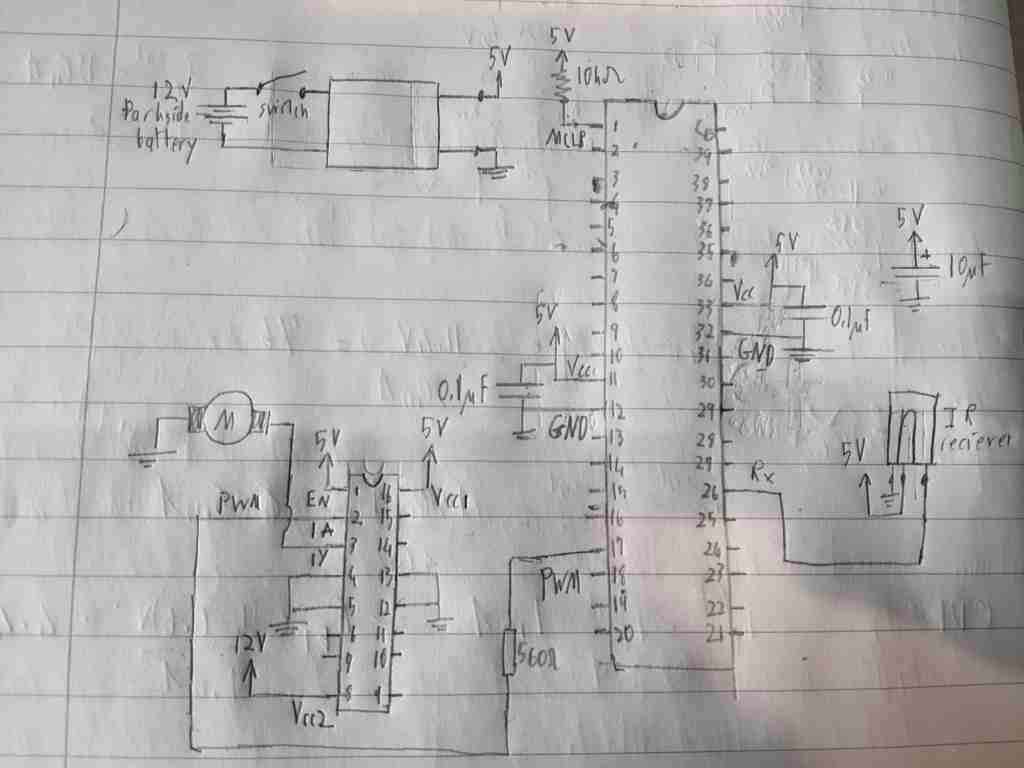 12V
Parkside
battery
switch
5V
5V
10kΩ
MCLR
1
2
3
4
5
6
7
8
9
10
11
12
13
14
15
16
17
18
19
20
40
39
38
37
36
35
34
33
32
31
30
29
28
27
26
25
24
23
22
21
5V
Vcc
0,1μF
GND
5V
+
10μF
5V
Vcc
0,1μF
GND
M
5V
5V
EN
Vcc1
PWM
1A
1Y
1
2
3
4
5
6
7
8
16
15
14
13
12
11
10
9
12V
Vcc2
PWM
560Ω
Rx
5V
IR
reciever